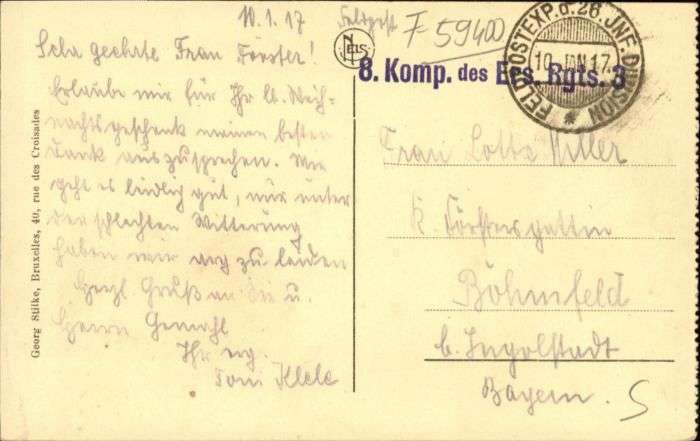 10.1.17 Feldpost
F-59400
Sehr geehrte Frau Förster!
8. Komp. des Ers. Rgts. 3
FELDPOSTEXP. d. 26. INF. DIVISION
10 JAN 17
Erlaube mir für Ihr lb. Weih-
nachtsgeschenk meinen besten
Dank auszusprechen. Mir
geht es leidlich gut, nur unter
der schlechten Witterung
haben wir arg zu leiden
Herzl Gruß an Sie u.
Herrn Gemahl
Ihr erg.
Toni
Frau Lotte
K. Förstersgattin
Böhmfeld
b. Ingolstadt
Bayern. S
Georg Stilke, Bruxelles, 40, rue des Croisades